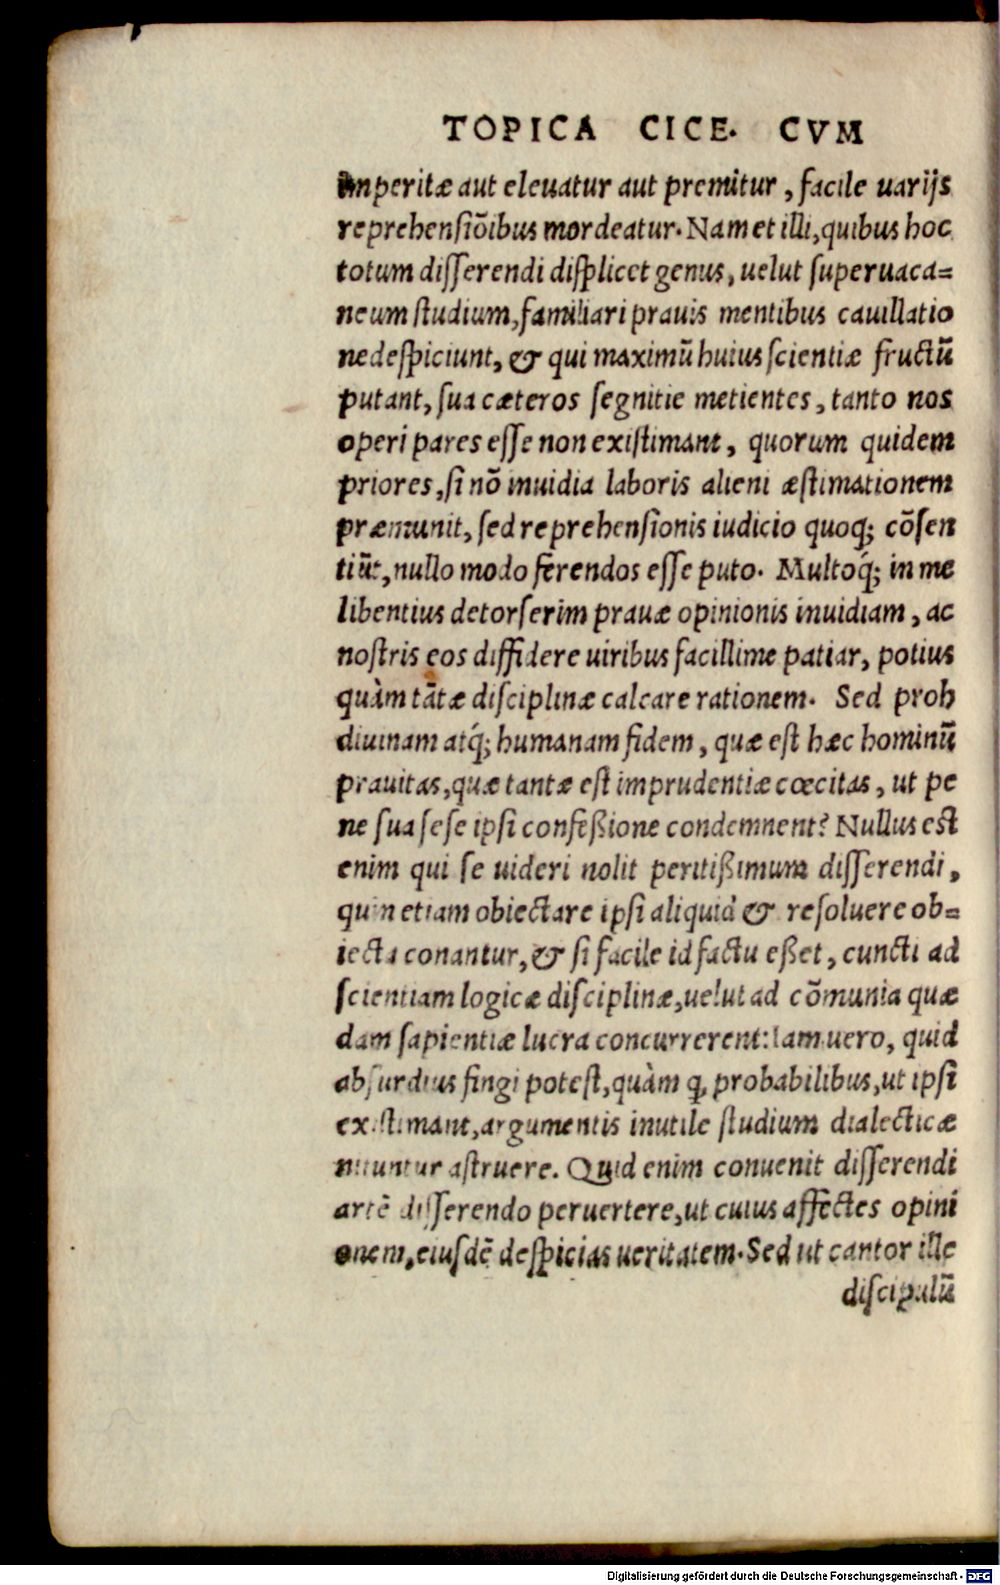 TOPICA CICE. CVM
imperitæ aut eleuatur aut premitur, facile uarijs
reprehensiõibus mordeatur. Nam et illi, quibus hoc
totum disserendi displicet genus, uelut superuaca=
neum studium, familiari prauis mentibus cauillatio
ne despiciunt, & qui maximũ huius scientiæ fructũ
putant, sua cæteros segnitie metientes, tanto nos
operi pares esse non existimant, quorum quidem
priores, si nõ inuidia laboris alieni æstimationem
præmunit, sed reprehensionis iudicio quoq; cõsen
tiũt, nullo modo ferendos esse puto. Multoq́; in me
libentius detorserim prauæ opinionis inuidiam, ac
nostris eos diffidere uiribus facillime patiar, potius
quàm tãtæ disciplinæ calcare rationem. Sed proh
diuinam atq́; humanam fidem, quæ est hæc hominũ
prauitas, quæ tantæ est imprudentiæ cœcitas, ut pe
ne sua sese ipsi confeßione condemnent? Nullus est
enim qui se uideri nolit peritißimum disserendi,
quin etiam obiectare ipsi aliquid & resoluere ob=
iecta conantur, & si facile id factu eßet, cuncti ad
scientiam logicæ disciplinæ, uelut ad cõmunia quæ
dam sapientiæ lucra concurrerent: Iam uero, quid
absurdius fingi potest, quàm ꝙ probabilibus, ut ipsi
existimant, argumentis inutile studium dialecticæ
nituntur astruere. Quid enim conuenit disserendi
artẽ disserendo peruertere, ut cuius affectes opini
onem, eiusdẽ despicias ueritatem. Sed ut cantor ille
discipulũ
Digitalisierung gefördert durch die Deutsche Forschungsgemeinschaft - DFG